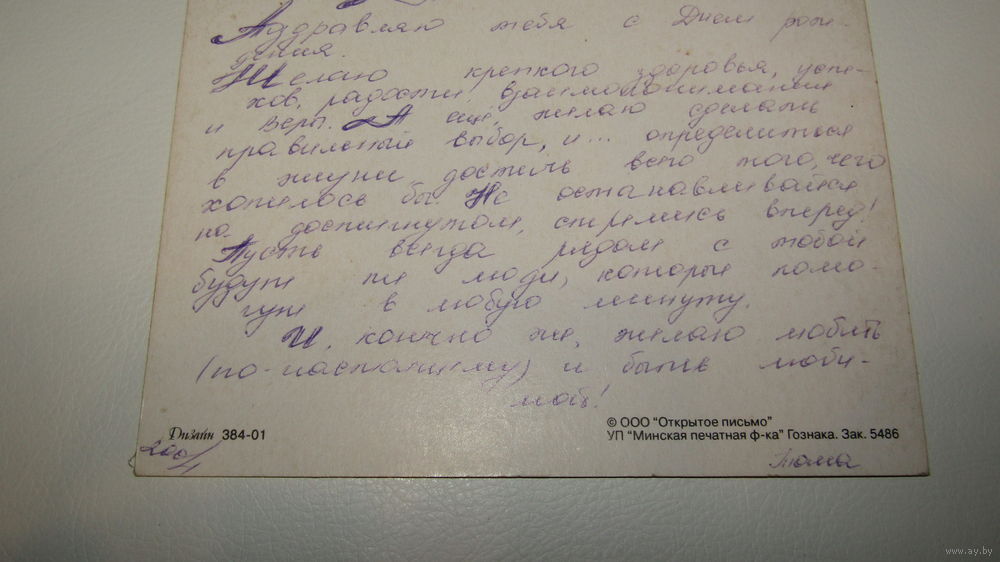 Поздравляю тебя с Днем рож-
дения.
Желаю крепкого здоровья, успе-
хов, радости, взаимопонимания
и веры. А ещё, желаю сделать
правильный выбор, и... определиться
в жизни, достичь всего того, чего
хотелось бы. Не останавливайся
на достигнутом, стремись вперед!
Пусть всегда рядом с тобой
будут те люди, которые помо-
гут в любую минуту.
И, конечно же, желаю любить
(по-настоящему) и быть люби-
мой!
Дизайн 384-01
© ООО "Открытое письмо"
УП "Минская печатная ф-ка" Гознака. Зак. 5486
Тома
www.ay.by